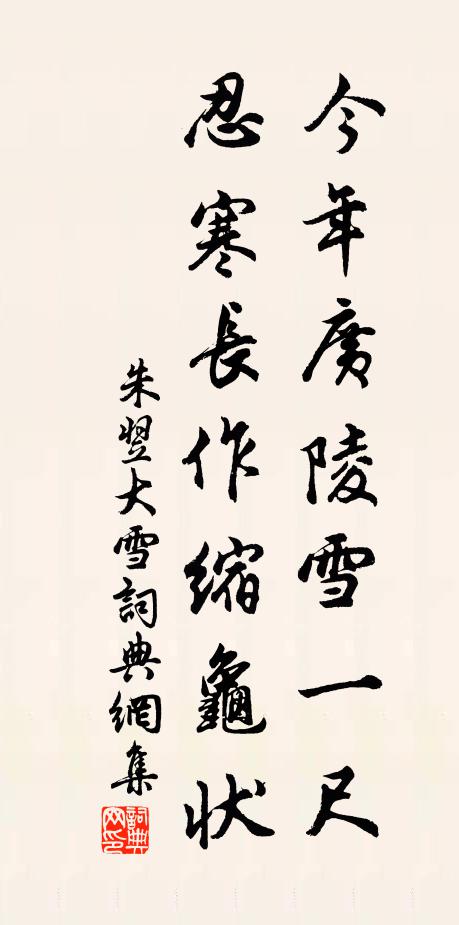 今年廣陵雪一尺
忍寒長作縮龜状
朱翌大雪詞典網集
詞典网印